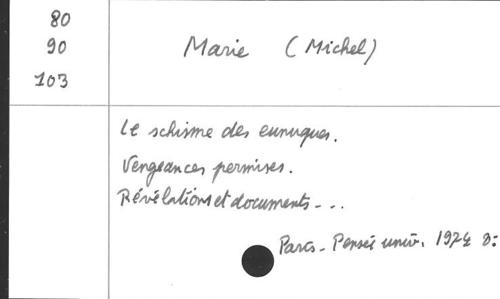 80
90
103
Marie (Michel)
Le schisme des eunuques.
Vengeances permises.
Révélations et documents - ...
Paris - Pensée univ. 1974 8: